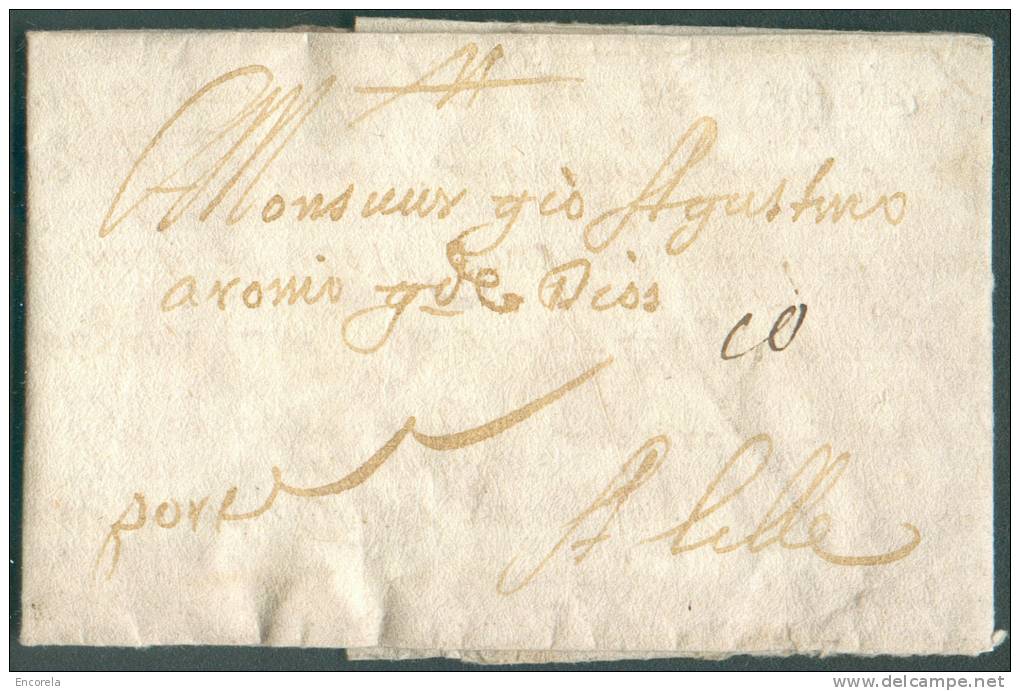 Monsieur gio Agustino
aronio gde Dios
co
port
A lille
Encorela
www.delcampe.net